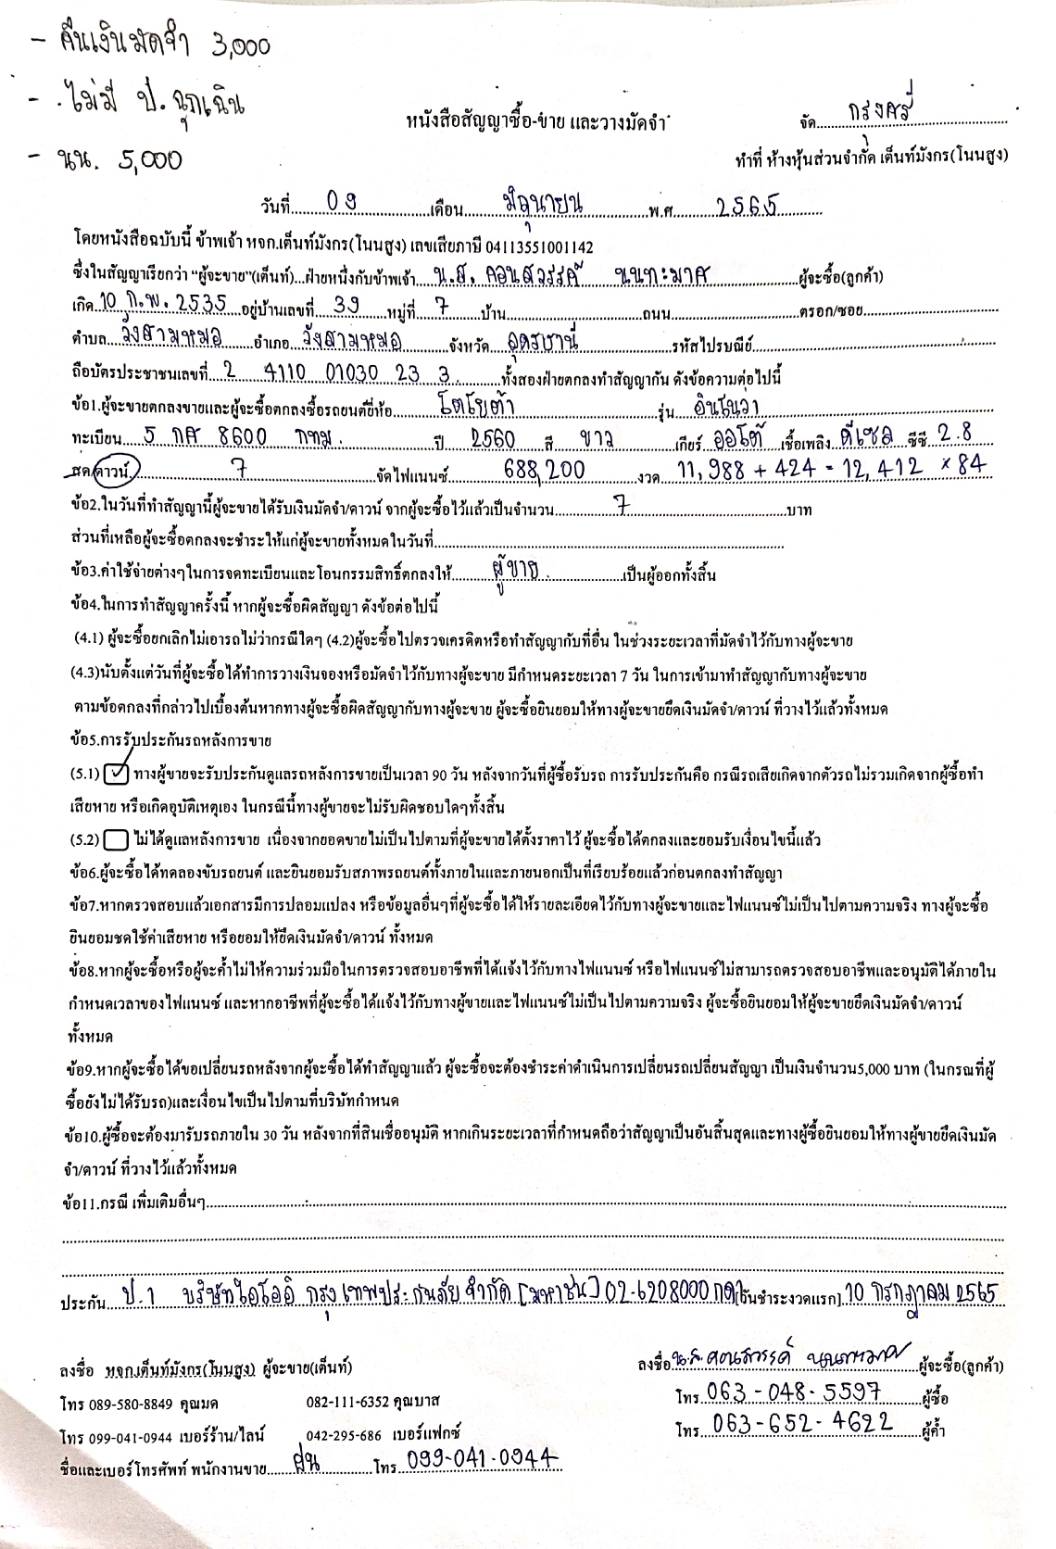 - คืนเงินมัดจำ 3,000
- ไม่มี ป. ฉุกเฉิน
- นน. 5,000
หนังสือสัญญาซื้อ-ขาย และวางมัดจำ
จัด กรุงศรี
ทำที่ ห้างหุ้นส่วนจำกัด เต็นท์มังกร(โนนสูง)
วันที่ 09 เดือน มิถุนายน พ.ศ 2565
โดยหนังสือฉบับนี้ ข้าพเจ้า หจก.เต็นท์มังกร(โนนสูง) เลขเสียภานี 04113551001142
ซึ่งในสัญญาเรียกว่า "ผู้จะขาย"(เต็นท์)...ฝ่ายหนึ่งกับข้าพเจ้า น.ส. คอนสวรรค์ นนทะมาศ ผู้จะซื้อ(ลูกค้า)
เกิด 10 ก.พ. 2535 อยู่บ้านเลขที่ 39 หมู่ที่ 7 บ้าน ถนน ตรอก/ซอย
ตำบล วังสามหมอ อำเภอ วังสามหมอ จังหวัด อุดรธานี รหัสไปรษณีย์
ถือบัตรประชาชนเลขที่ 2 4110 01030 23 3 ทั้งสองฝ่ายตกลงทำสัญญากัน ดังข้อความต่อไปนี้
ข้อ1.ผู้จะขายตกลงขายและผู้จะซื้อตกลงซื้อรถยนต์ยี่ห้อ โตโยต้า รุ่น อินโนวา
ทะเบียน 5 กศ 8600 กทม. ปี 2560 สี ขาว เกียร์ ออโต้ เชื้อเพลิง ดีเซล ซีซี 2.8
สด/ดาวน์ 7 จัดไฟแนนซ์ 688,200 งวด 11,988 + 424 = 12,412 × 84
ข้อ2.ในวันที่ทำสัญญานี้ผู้จะขายได้รับเงินมัดจำ/ดาวน์ จากผู้จะซื้อไว้แล้วเป็นจำนวน 7 บาท
ส่วนที่เหลือผู้จะซื้อตกลงจะชำระให้แก่ผู้จะขายทั้งหมดในวันที่
ข้อ3.ค่าใช้จ่ายต่างๆในการจดทะเบียนและโอนกรรมสิทธิ์ตกลงให้ ผู้ขาย เป็นผู้ออกทั้งสิ้น
ข้อ4.ในการทำสัญญาครั้งนี้ หากผู้จะซื้อผิดสัญญา ดังข้อต่อไปนี้
(4.1) ผู้จะซื้อยกเลิกไม่เอารถไม่ว่ากรณีใดๆ (4.2)ผู้จะซื้อไปตรวจเครดิตหรือทำสัญญากับที่อื่น ในช่วงระยะเวลาที่มัดจำไว้กับทางผู้จะขาย
(4.3)นับตั้งแต่วันที่ผู้จะซื้อได้ทำการวางเงินจองหรือมัดจำไว้กับทางผู้จะขาย มีกำหนดระยะเวลา 7 วัน ในการเข้ามาทำสัญญากับทางผู้จะขาย
ตามข้อตกลงที่กล่าวไปเบื้องต้นหากทางผู้จะซื้อผิดสัญญากับทางผู้จะขาย ผู้จะซื้อยินยอมให้ทางผู้จะขายยึดเงินมัดจำ/ดาวน์ ที่วางไว้แล้วทั้งหมด
ข้อ5.การรับประกันรถหลังการขาย
(5.1) ☑ ทางผู้ขายจะรับประกันดูแลรถหลังการขายเป็นเวลา 90 วัน หลังจากวันที่ผู้ซื้อรับรถ การรับประกันคือ กรณีรถเสียเกิดจากตัวรถไม่รวมเกิดจากผู้ซื้อทำ
เสียหาย หรือเกิดอุบัติเหตุเอง ในกรณีนี้ทางผู้ขายจะไม่รับผิดชอบใดๆทั้งสิ้น
(5.2) ☐ ไม่ได้ดูแลหลังการขาย เนื่องจากยอดขายไม่เป็นไปตามที่ผู้จะขายได้ตั้งราคาไว้ ผู้จะซื้อได้ตกลงและยอมรับเงื่อนไขนี้แล้ว
ข้อ6.ผู้จะซื้อได้ทดลองขับรถยนต์ และยินยอมรับสภาพรถยนต์ทั้งภายในและภายนอกเป็นที่เรียบร้อยแล้วก่อนตกลงทำสัญญา
ข้อ7.หากตรวจสอบแล้วเอกสารมีการปลอมแปลง หรือข้อมูลอื่นๆที่ผู้จะซื้อได้ให้รายละเอียดไว้กับทางผู้จะขายและไฟแนนซ์ไม่เป็นไปตามความจริง ทางผู้จะซื้อ
ยินยอมชดใช้ค่าเสียหาย หรือยอมให้ยึดเงินมัดจำ/ดาวน์ ทั้งหมด
ข้อ8.หากผู้จะซื้อหรือผู้จะค้ำไม่ให้ความร่วมมือในการตรวจสอบอาชีพที่ได้แจ้งไว้กับทางไฟแนนซ์ หรือไฟแนนซ์ไม่สามารถตรวจสอบอาชีพและอนุมัติได้ภายใน
กำหนดเวลาของไฟแนนซ์ และหากอาชีพที่ผู้จะซื้อได้แจ้งไว้กับทางผู้ขายและไฟแนนซ์ไม่เป็นไปตามความจริง ผู้จะซื้อยินยอมให้ผู้จะขายยึดเงินมัดจำ/ดาวน์
ทั้งหมด
ข้อ9.หากผู้จะซื้อได้ขอเปลี่ยนรถหลังจากผู้จะซื้อได้ทำสัญญาแล้ว ผู้จะซื้อจะต้องชำระค่าดำเนินการเปลี่ยนรถเปลี่ยนสัญญา เป็นเงินจำนวน5,000 บาท (ในกรณที่ผู้
ซื้อยังไม่ได้รับรถ)และเงื่อนไขเป็นไปตามที่บริษัทกำหนด
ข้อ10.ผู้ซื้อจะต้องมารับรถภายใน 30 วัน หลังจากที่สินเชื่ออนุมัติ หากเกินระยะเวลาที่กำหนดถือว่าสัญญาเป็นอันสิ้นสุดและทางผู้ซื้อยินยอมให้ทางผู้ขายยึดเงินมัด
จำ/ดาวน์ ที่วางไว้แล้วทั้งหมด
ข้อ11.กรณี เพิ่มเติมอื่นๆ
ประกัน ป.1 บริษัทไอโออิ กรุงเทพประกันภัย จำกัด [มหาชน] 02-6208000 กด1 [วันชำระงวดแรก] 10 กรกฎาคม 2565
ลงชื่อ หจก.เต็นท์มังกร(โนนสูง) ผู้จะขาย(เต็นท์)
ลงชื่อ น.ส. คอนสวรรค์ นนทะมาศ ผู้จะซื้อ(ลูกค้า)
โทร 089-580-8849 คุณมด 082-111-6352 คุณบาส
โทร 063-048-5597 ผู้ซื้อ
โทร 099-041-0944 เบอร์ร้าน/ไลน์ 042-295-686 เบอร์แฟกซ์
โทร 063-652-4622 ผู้ค้ำ
ชื่อและเบอร์โทรศัพท์ พนักงานขาย ฝน โทร 099-041-0944